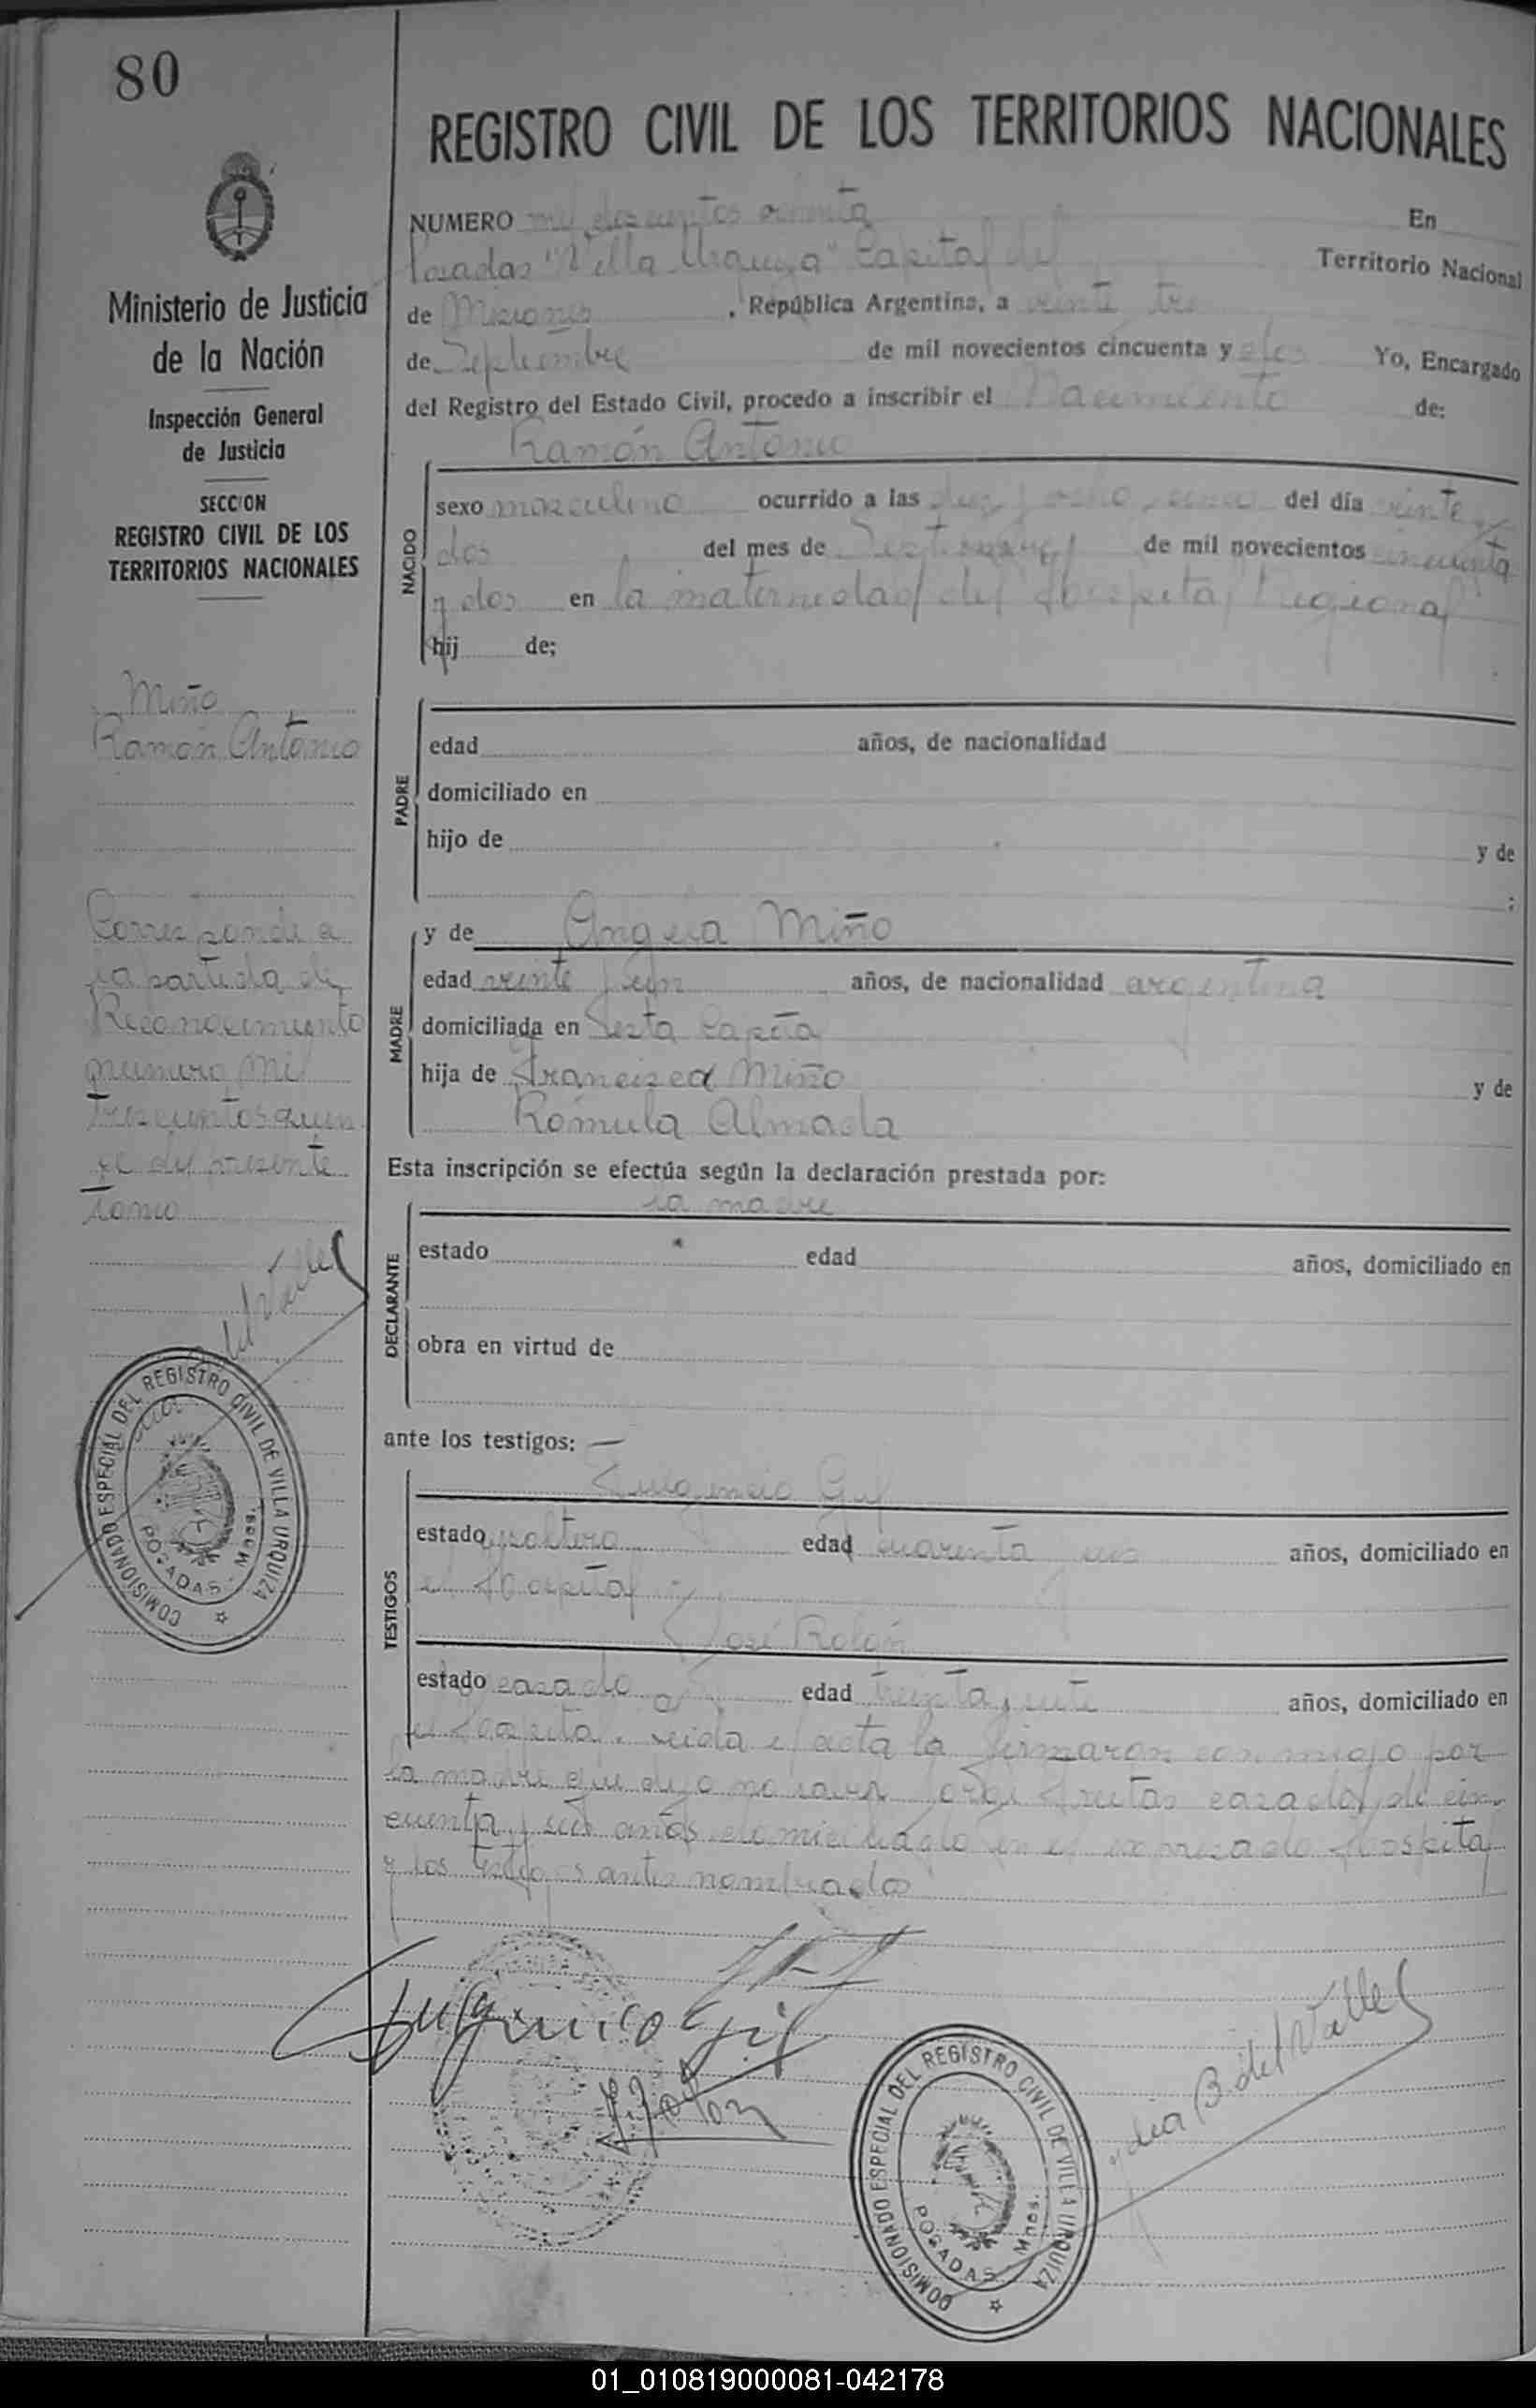 80
REGISTRO CIVIL DE LOS TERRITORIOS NACIONALES
Ministerio de Justicia
de la Nación
Inspección General
de Justicia
SECCION
REGISTRO CIVIL DE LOS
TERRITORIOS NACIONALES
NUMERO mil doscientos ochenta En
Posadas "Villa Urquiza" Capital del Territorio Nacional
de Misiones, República Argentina, a veinte tres
de Septiembre de mil novecientos cincuenta y dos Yo, Encargado
del Registro del Estado Civil, procedo a inscribir el Nacimiento de:
Ramón Antonio
NACIDO
sexo masculino ocurrido a las diez y ocho horas del día veinte y
dos del mes de Septiembre de mil novecientos cincuenta
y dos en la maternidad del Hospital Regional
hij de;
Miño
Ramón Antonio
PADRE
edad años, de nacionalidad
domiciliado en
hijo de y de
;
Corresponde a
la partida de
Reconocimiento
número mil
trescientos quin
ce del presente
tomo
del Valle
MADRE
y de Angela Miño
edad veinte y un años, de nacionalidad argentina
domiciliada en Sexta Capital
hija de Francisca Miño y de
Rómula Almada
Esta inscripción se efectúa según la declaración prestada por:
la madre
DECLARANTE
estado edad años, domiciliado en
obra en virtud de
ante los testigos: —
TESTIGOS
Fulgencio Gil
estado soltero edad cuarenta y años, domiciliado en
el Hospital
José Rolón
estado casado edad treinta y siete años, domiciliado en
el Hospital. Leida el acta la firmaron conmigo por
la madre que dijo no saber Jorge Fleitas casado, de cin
cuenta y seis años domiciliado en el expresado Hospital
y los testigos antes nombrados
Fulgencio Gil
J. Rolon
Lidia B. del Valle
COMISIONADO ESPECIAL DEL REGISTRO CIVIL DE VILLA URQUIZA
POSADAS - Mnes.
COMISIONADO ESPECIAL DEL REGISTRO CIVIL DE VILLA URQUIZA
POSADAS - Mnes.
01_010819000081-042178